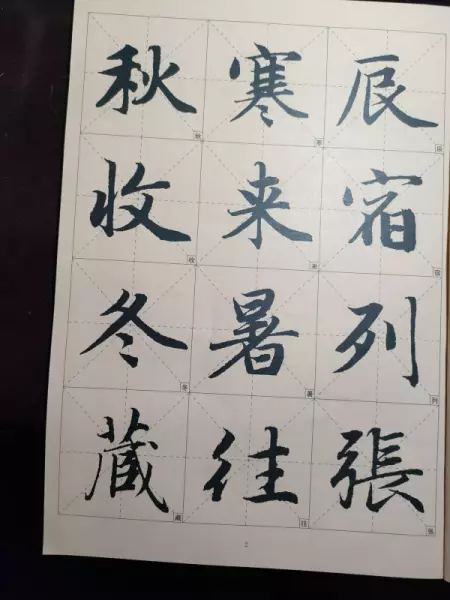 辰宿列張
寒来暑往
秋收冬藏
2